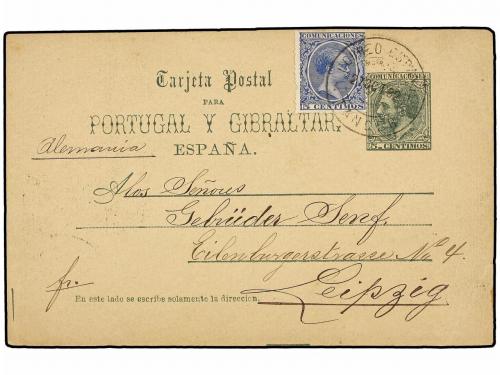 COMUNICACIONES
5 CENTIMOS
COMUNICACIONES
5 CENTIMOS
Tarjeta Postal
PARA
PORTUGAL Y GIBRALTAR.
ESPAÑA.
Alemania
A los Señores
Gebrüder Senf.
Eilenburgerstrasse No 4.
fr. Leipzig.
En este lado se escribe solamente la direccion.